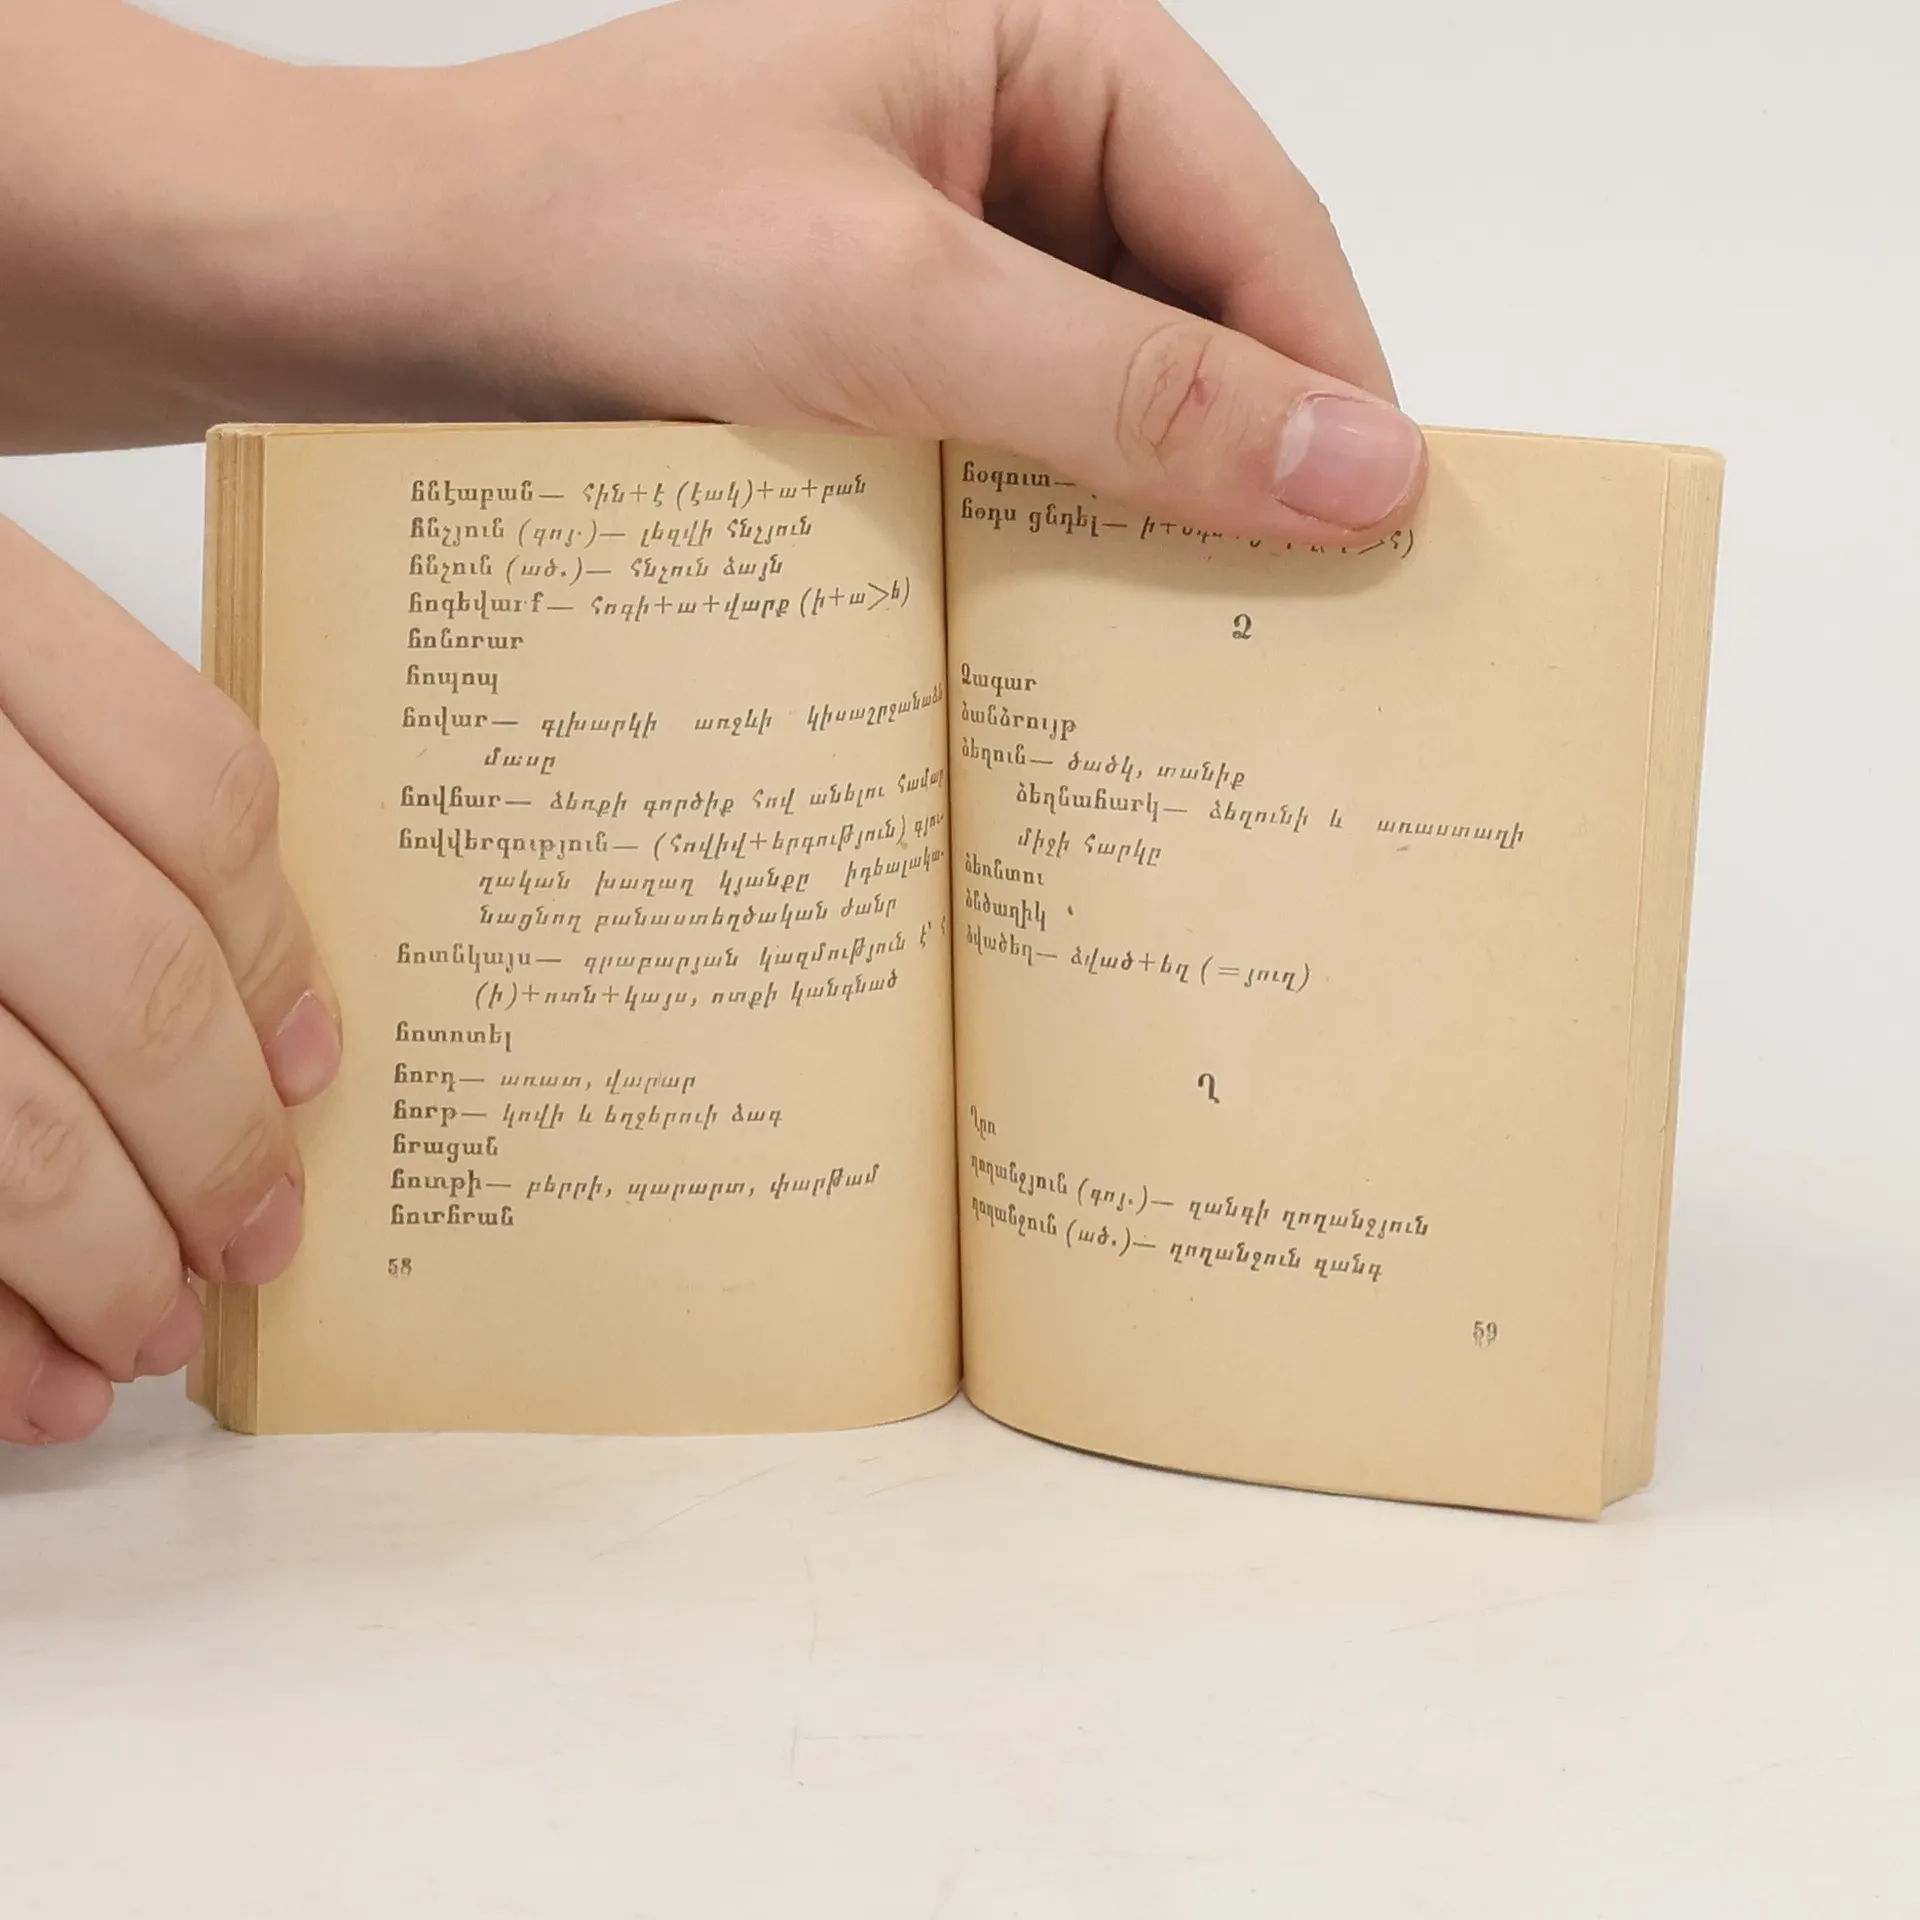 հնէաբան— հին+է (էակ)+ա+բան
հնչյուն (գոյ.)— լեզվի հնչյուն
հնչուն (ած.)— հնչուն ձայն
հոգեվարք— հոգի+ա+վարք (ի+ա>ե)
հոնորար
հոպոպ
հովար— գլխարկի առջևի կիսաշրջանաձև
մասը
հովհար— ձեռքի գործիք հով անելու համար
հովվերգություն— (հովիվ+երգություն) գյու-
ղական խաղաղ կյանքը իդեալակա-
նացնող բանաստեղծական ժանր
հոտնկայս— գրաբարյան կազմություն է՝ հ
(ի)+ոտն+կայս, ոտքի կանգնած
հոտոտել
հորդ— առատ, վարար
հորթ— կովի և եղջերուի ձագ
հրացան
հուռթի— բերրի, պարարտ, փարթամ
հուրհրան
58
հօգուտ—
հօդս ցնդել— >հ)
Ձ
Ձագար
ձանձրույթ
ձեղուն— ծածկ, տանիք
ձեղնահարկ— ձեղունի և առաստաղի
միջի հարկը
ձեռնտու
ձնծաղիկ
ձվածեղ— ձված+եղ (=յուղ)
Ղ
Ղըռ
ղողանջյուն (գոյ.)— զանգի ղողանջյուն
ղողանջուն (ած.)— ղողանջուն զանգ
59